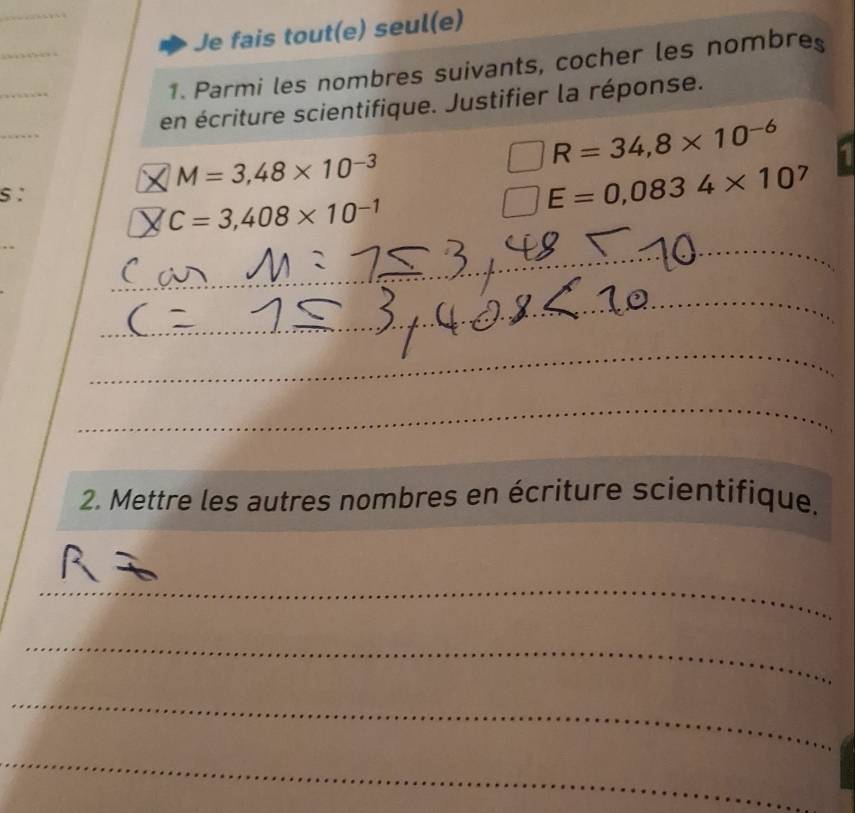 Je fais tout(e) seul(e)
1. Parmi les nombres suivants, cocher les nombres
en écriture scientifique. Justifier la réponse.
M = 3,48 × 10⁻³
R = 34,8 × 10⁻⁶
C = 3,408 × 10⁻¹
E = 0,083 4 × 10⁷
Car M = 1 ≤ 3,48 < 10
C = 1 ≤ 3,408 < 10
2. Mettre les autres nombres en écriture scientifique.
R =
s :
1